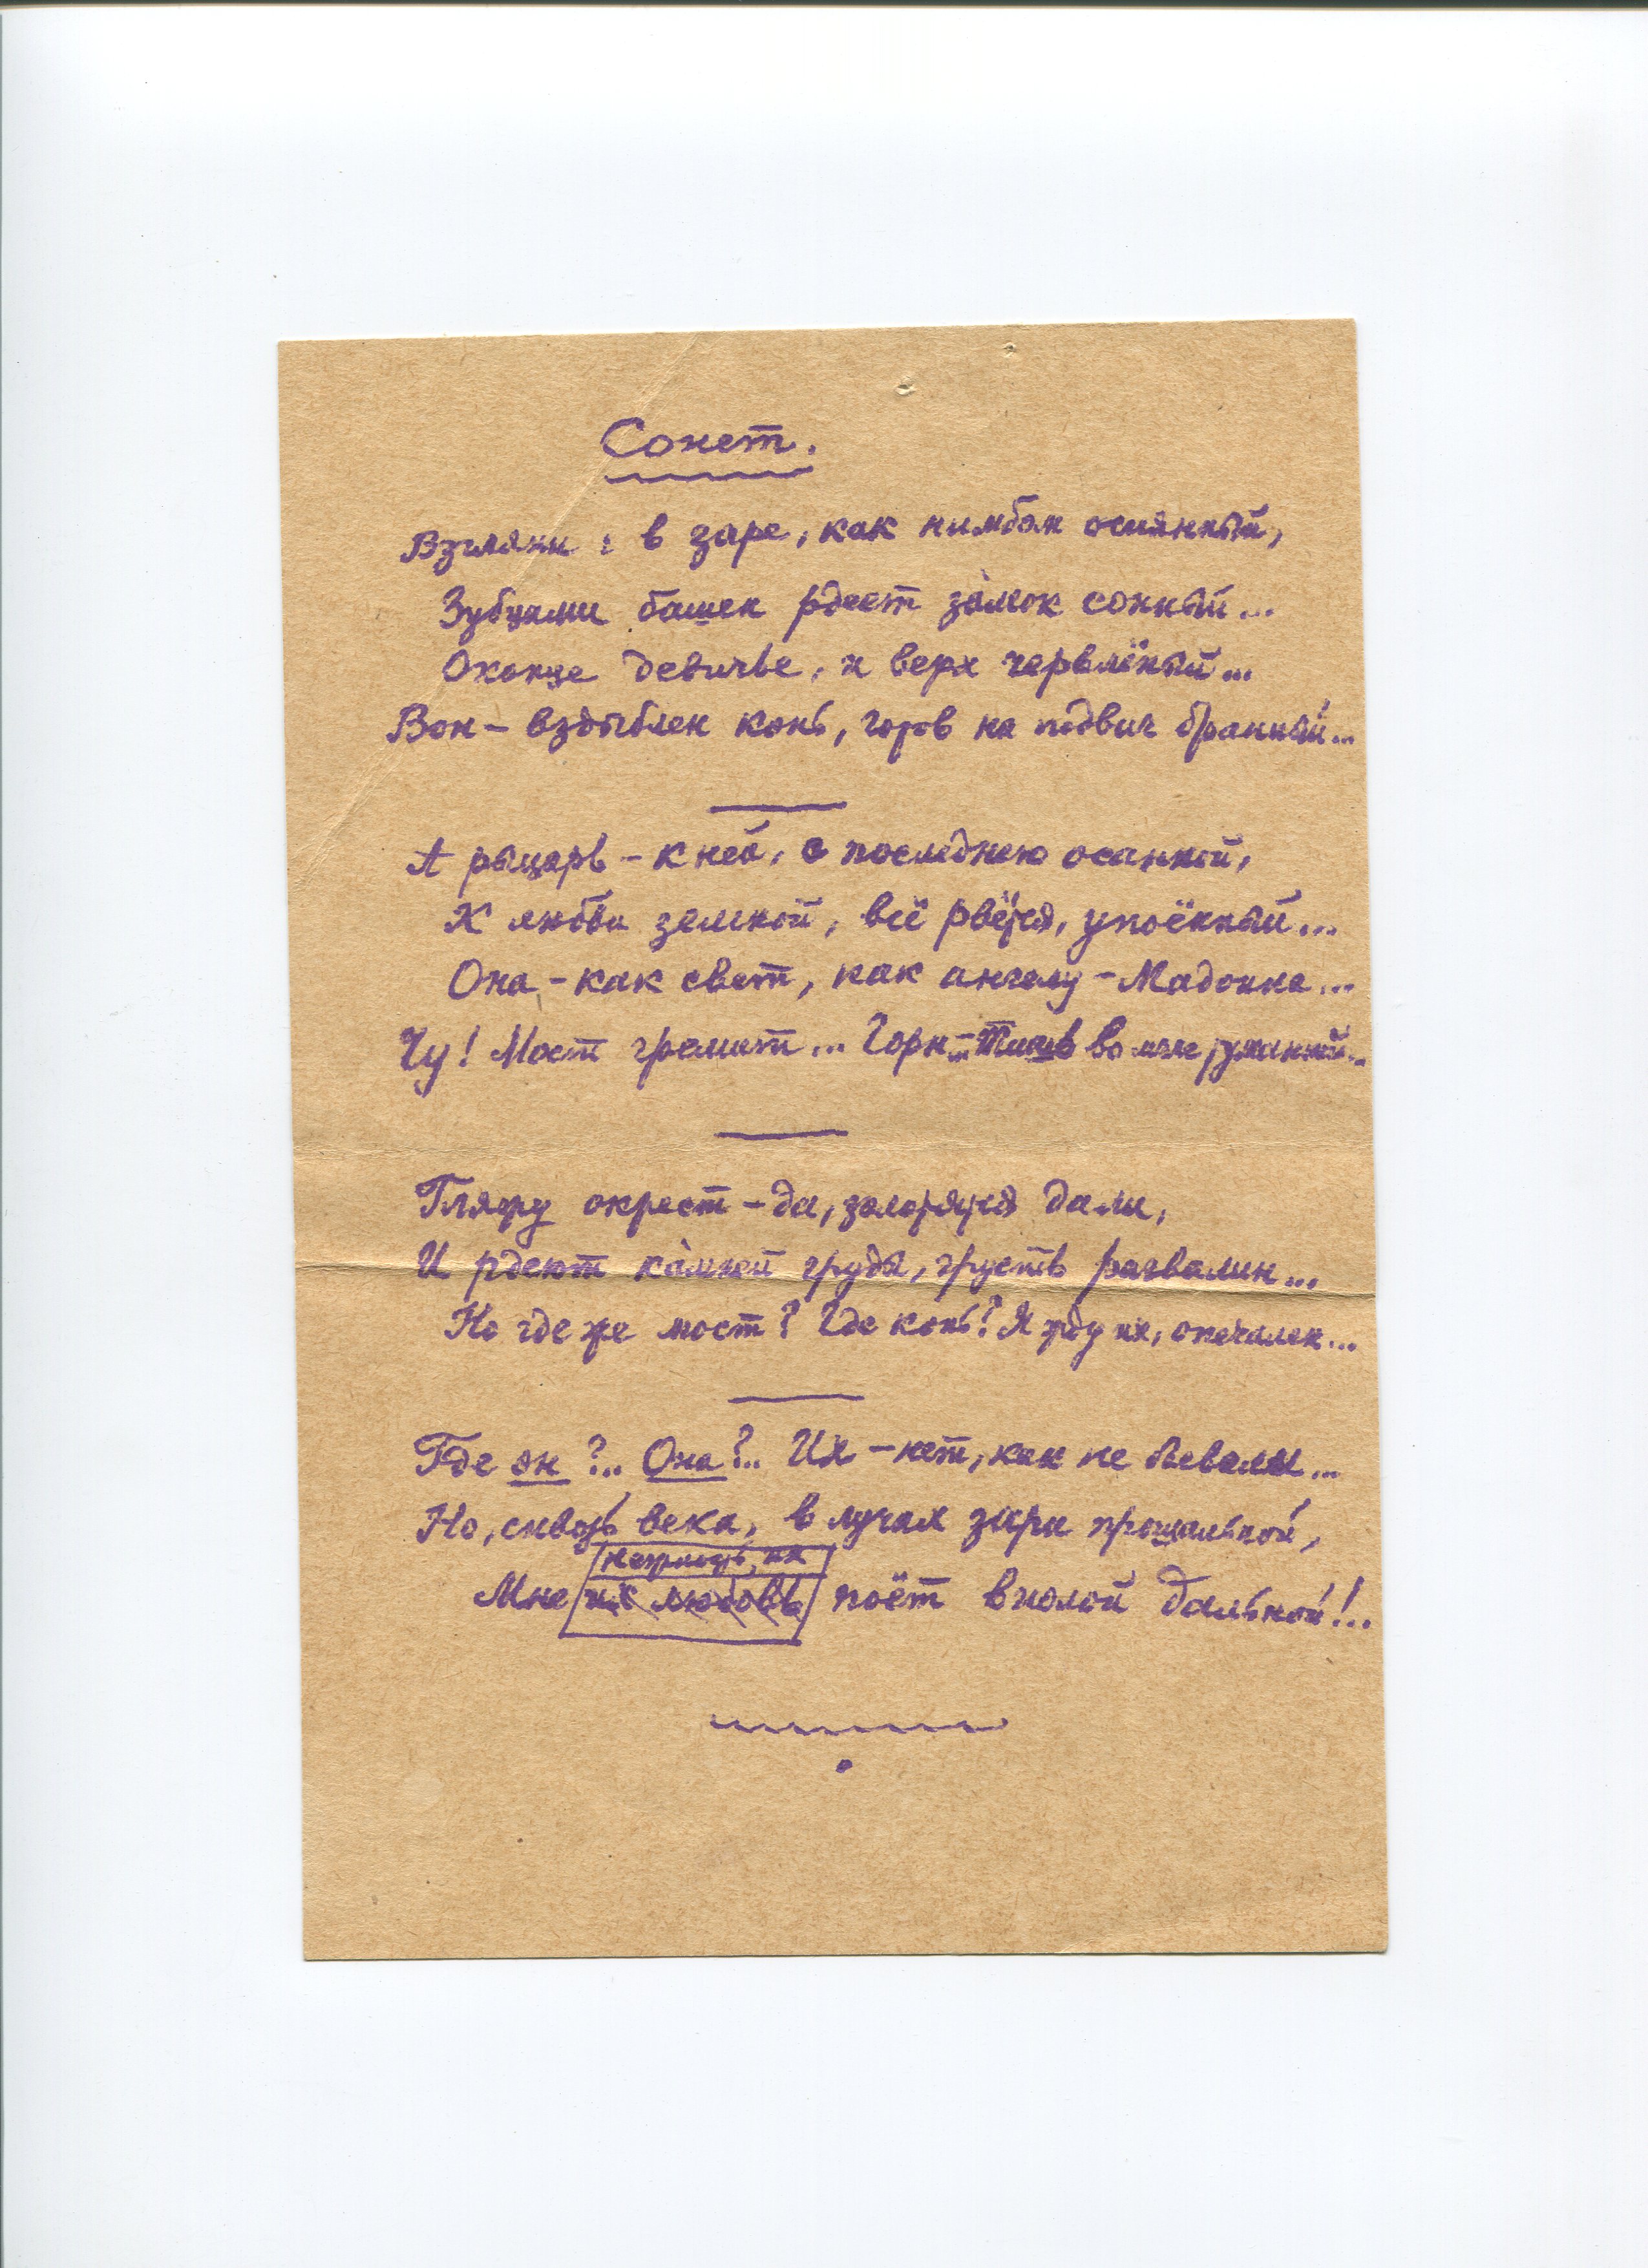 Сонет.
Взгляни: в заре, как нимбом осиянный,
Зубцами башен рдеет за́мок сонный...
Оконце девичье, и верх червлёный...
Вон – вздыблен конь, готов на подвиг бранный...
А рыцарь – к ней, с последнею осанной,
К любви земной, всё рвётся, упоённый...
Она – как свет, как ангелу – Мадонна...
Чу! Мост гремит... Горн... Тишь во мгле туманной...
Гляжу окрест – да, золотятся дали,
И рдеют ка́мней груды, грусть развалин...
Но где же мост? Где конь? Я жду их, опечален...
Где он?.. Она?.. Их – нет, как не бывали...
Но, сквозь века, в лучах зари прощальной,
их
Мне их любовь поёт виолой дальной!..